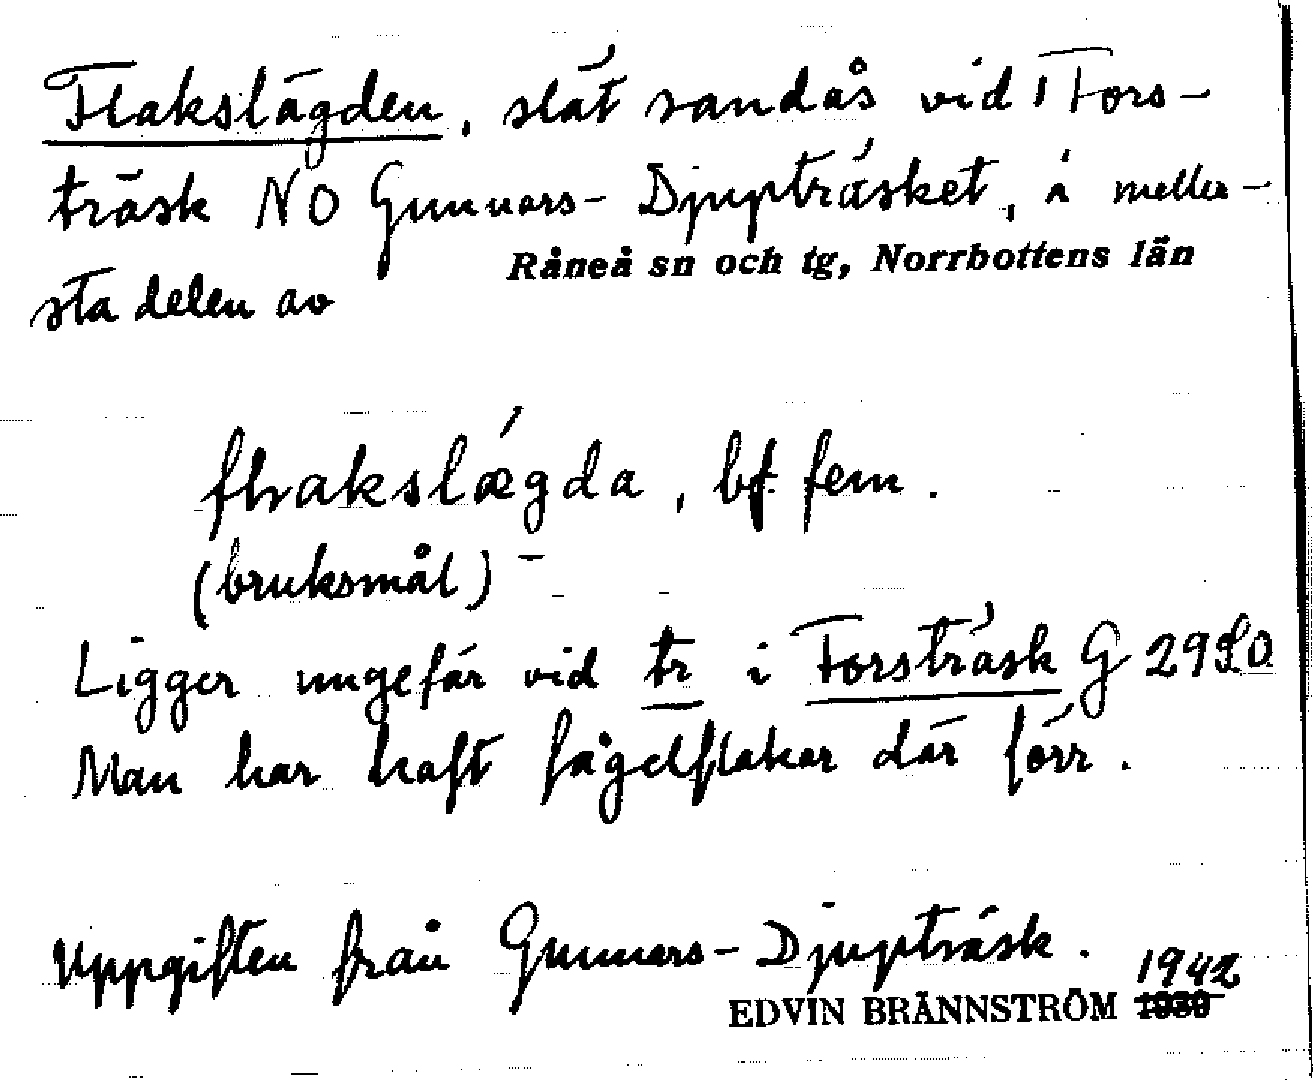 Flakslägden, slät sandås vid Fors-
träsk NO Gunnars-Djupträsket, i meller-
sta delen av
Råneå sn och tg, Norrbottens län
flrakslægda, bf. fem.
(bruksmål)
Ligger ungefär vid tr i Forsträsk G 2950
Man har haft fågelflakar där förr.
Uppgiften från Gunnars-Djupträsk.
1942
EDVIN BRÄNNSTRÖM 1930